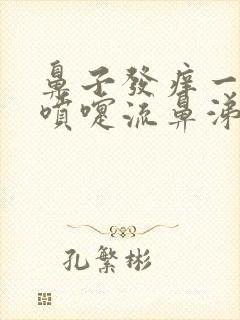 鼻子發癢一
噴嚏流鼻涕
孔繁彬